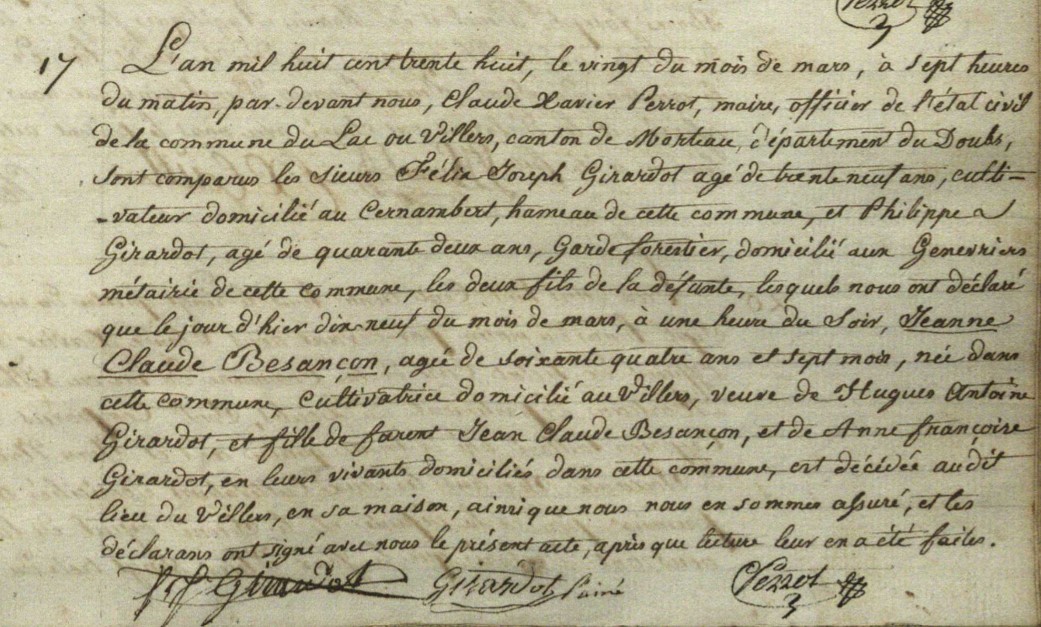 Perrot
17 L'an mil huit cent trente huit, le vingt du mois de mars, à sept heures
du matin, par-devant nous, Claude Xavier Perrot, maire, officier de l'état civil
de la commune du Lac ou Villers, canton de Morteau, département du Doubs,
sont comparus les sieurs Félix Joseph Girardot agé de trente neuf ans, culti-
-vateur domicilié au Cernambert, hameau de cette commune, et Philippe
Girardot, agé de quarante deux ans, Garde forestier, domicilié aux Genevriers
métairie de cette commune, les deux fils de la défunte, lesquels nous ont déclaré
que le jour d'hier dix neuf du mois de mars, à une heure du Soir, Jeanne
Claude Besançon, agée de soixante quatre ans et sept mois, née dans
cette commune, Cultivatrice domicilié au Villers, veuve de Hugues Antoine
Girardot, et fille de furent Jean Claude Besançon, et de Anne françoise
Girardot, en leurs vivants domiciliés dans cette commune, est décédée audit
lieu du Villers, en sa maison, ainsi que nous nous en sommes assuré, et les
déclarans ont signé avec nous le présent acte, après que lecture leur en a été faites.
f J Girardot Girardot l'ainé Perrot